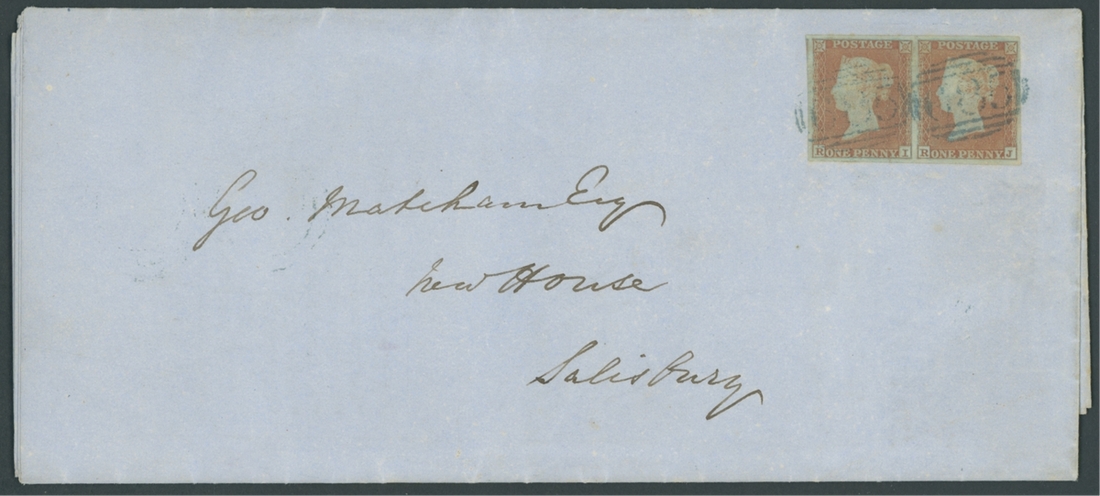 POSTAGE POSTAGE
R ONE PENNY I R ONE PENNY J
Geo. Matcham Esq
New House
Salisbury